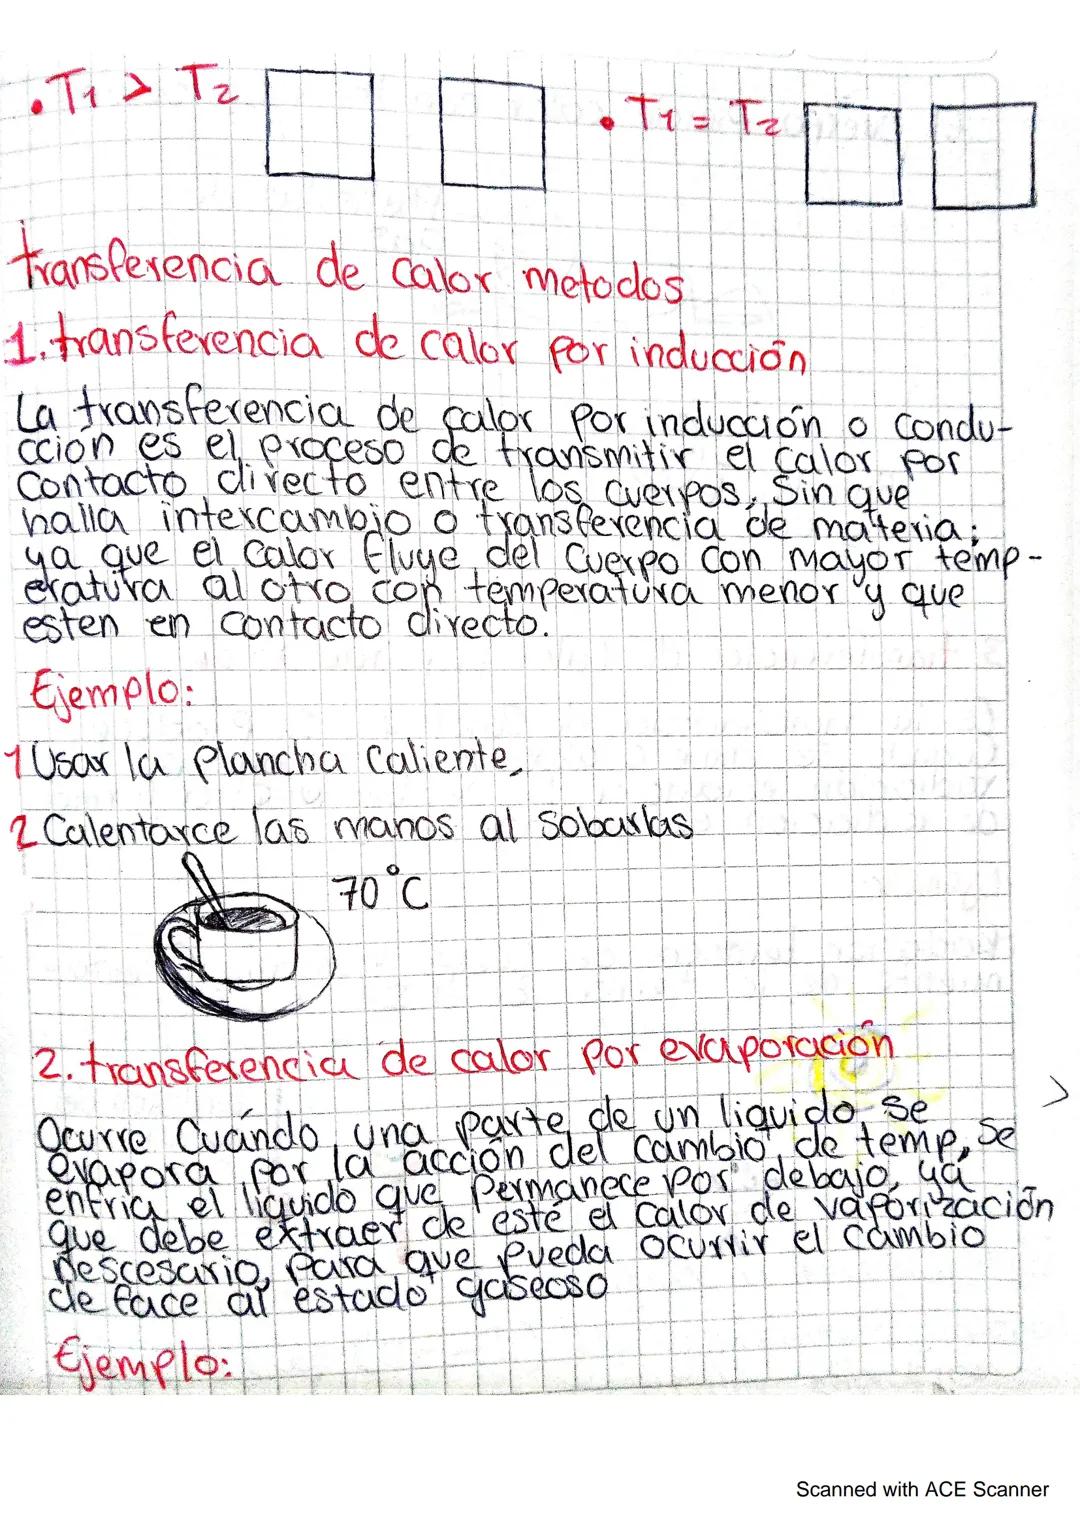 • T1 > T2
• T1 = T2
transferencia de calor metodos
1. transferencia de calor por inducción
La transferencia de calor por inducción o condu-
ccion es el proceso de transmitir el calor por
contacto directo entre los cuerpos, Sin que
halla intercambio o transferencia de materia;
ya que el calor fluye del Cuerpo con mayor temp-
eratura al otro con temperatura menor y que
esten en contacto directo.
Ejemplo:
1 Usar la plancha caliente,
2 Calentarce las manos al sobarlas
70°C
2. transferencia de calor por evaporación
Ocurre Cuándo una parte de un liquido se
evapora por la acción del cambio de temp, se
enfria el liquido que permanece por debajo, ya
que debe extraer de esté el calor de vaporización
nescesario, para que pueda ocurrir el cambio
de face al estado gaseoso
Ejemplo:
Scanned with ACE Scanner